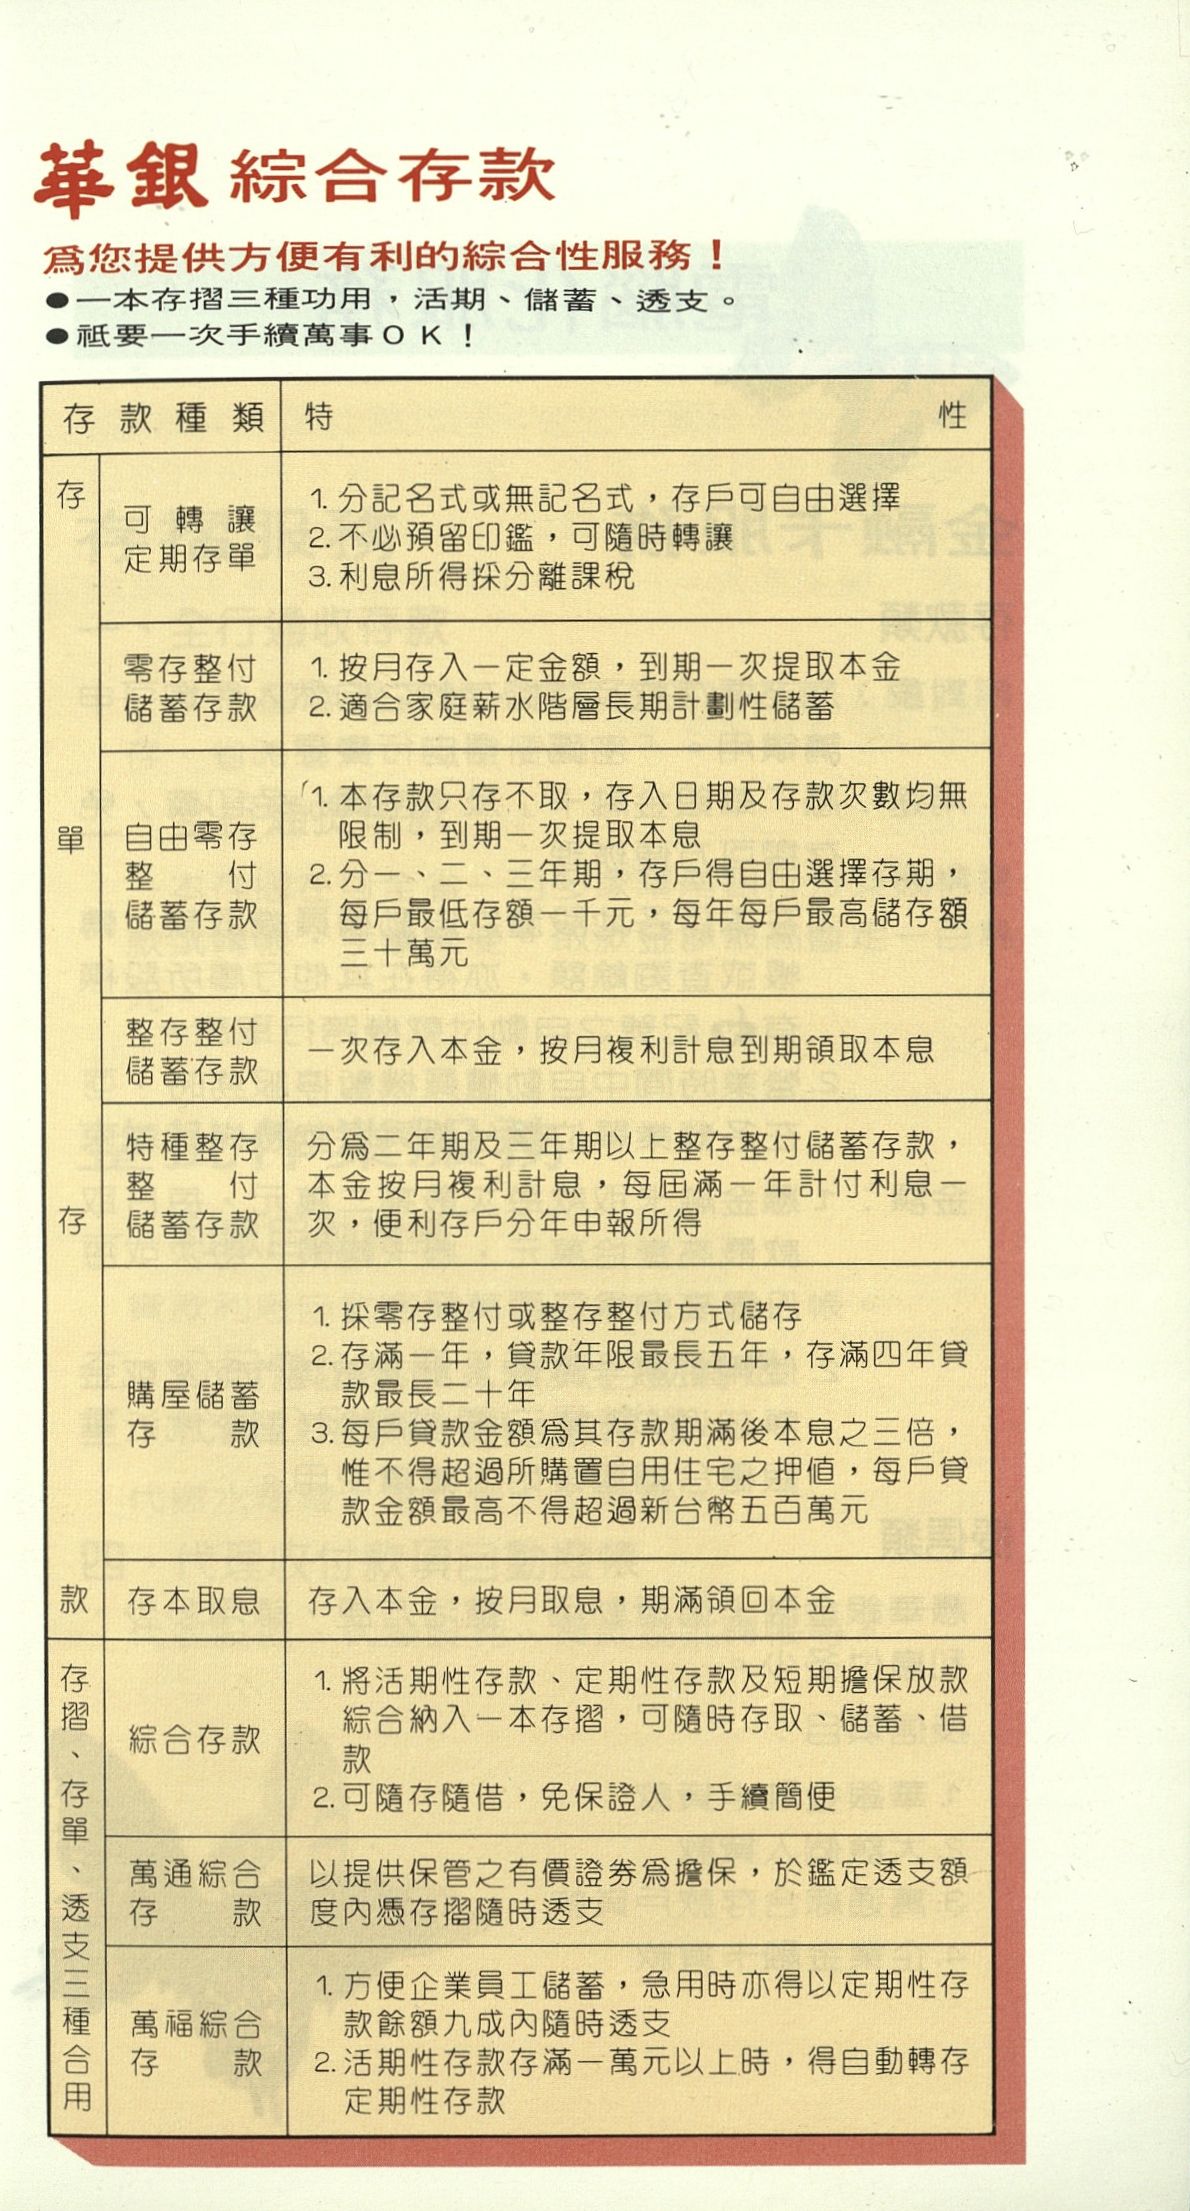 華銀 綜合存款
爲您提供方便有利的綜合性服務！
●一本存摺三種功用，活期、儲蓄、透支。
●祇要一次手續萬事ＯＫ！
存款種類 特性
存單存款
可轉讓
定期存單
1. 分記名式或無記名式，存戶可自由選擇
2. 不必預留印鑑，可隨時轉讓
3. 利息所得採分離課稅
零存整付
儲蓄存款
1. 按月存入一定金額，到期一次提取本金
2. 適合家庭薪水階層長期計劃性儲蓄
自由零存
整付
儲蓄存款
1. 本存款只存不取，存入日期及存款次數均無
限制，到期一次提取本息
2. 分一、二、三年期，存戶得自由選擇存期，
每戶最低存額一千元，每年每戶最高儲存額
三十萬元
整存整付
儲蓄存款
一次存入本金，按月複利計息到期領取本息
特種整存
整付
儲蓄存款
分爲二年期及三年期以上整存整付儲蓄存款，
本金按月複利計息，每屆滿一年計付利息一
次，便利存戶分年申報所得
購屋儲蓄
存款
1. 採零存整付或整存整付方式儲存
2. 存滿一年，貸款年限最長五年，存滿四年貸
款最長二十年
3. 每戶貸款金額爲其存款期滿後本息之三倍，
惟不得超過所購置自用住宅之押値，每戶貸
款金額最高不得超過新台幣五百萬元
存本取息
存入本金，按月取息，期滿領回本金
存摺、存單、透支三種合用
綜合存款
1. 將活期性存款、定期性存款及短期擔保放款
綜合納入一本存摺，可隨時存取、儲蓄、借
款
2. 可隨存隨借，免保證人，手續簡便
萬通綜合
存款
以提供保管之有價證券爲擔保，於鑑定透支額
度內憑存摺隨時透支
萬福綜合
存款
1. 方便企業員工儲蓄，急用時亦得以定期性存
款餘額九成內隨時透支
2. 活期性存款存滿一萬元以上時，得自動轉存
定期性存款